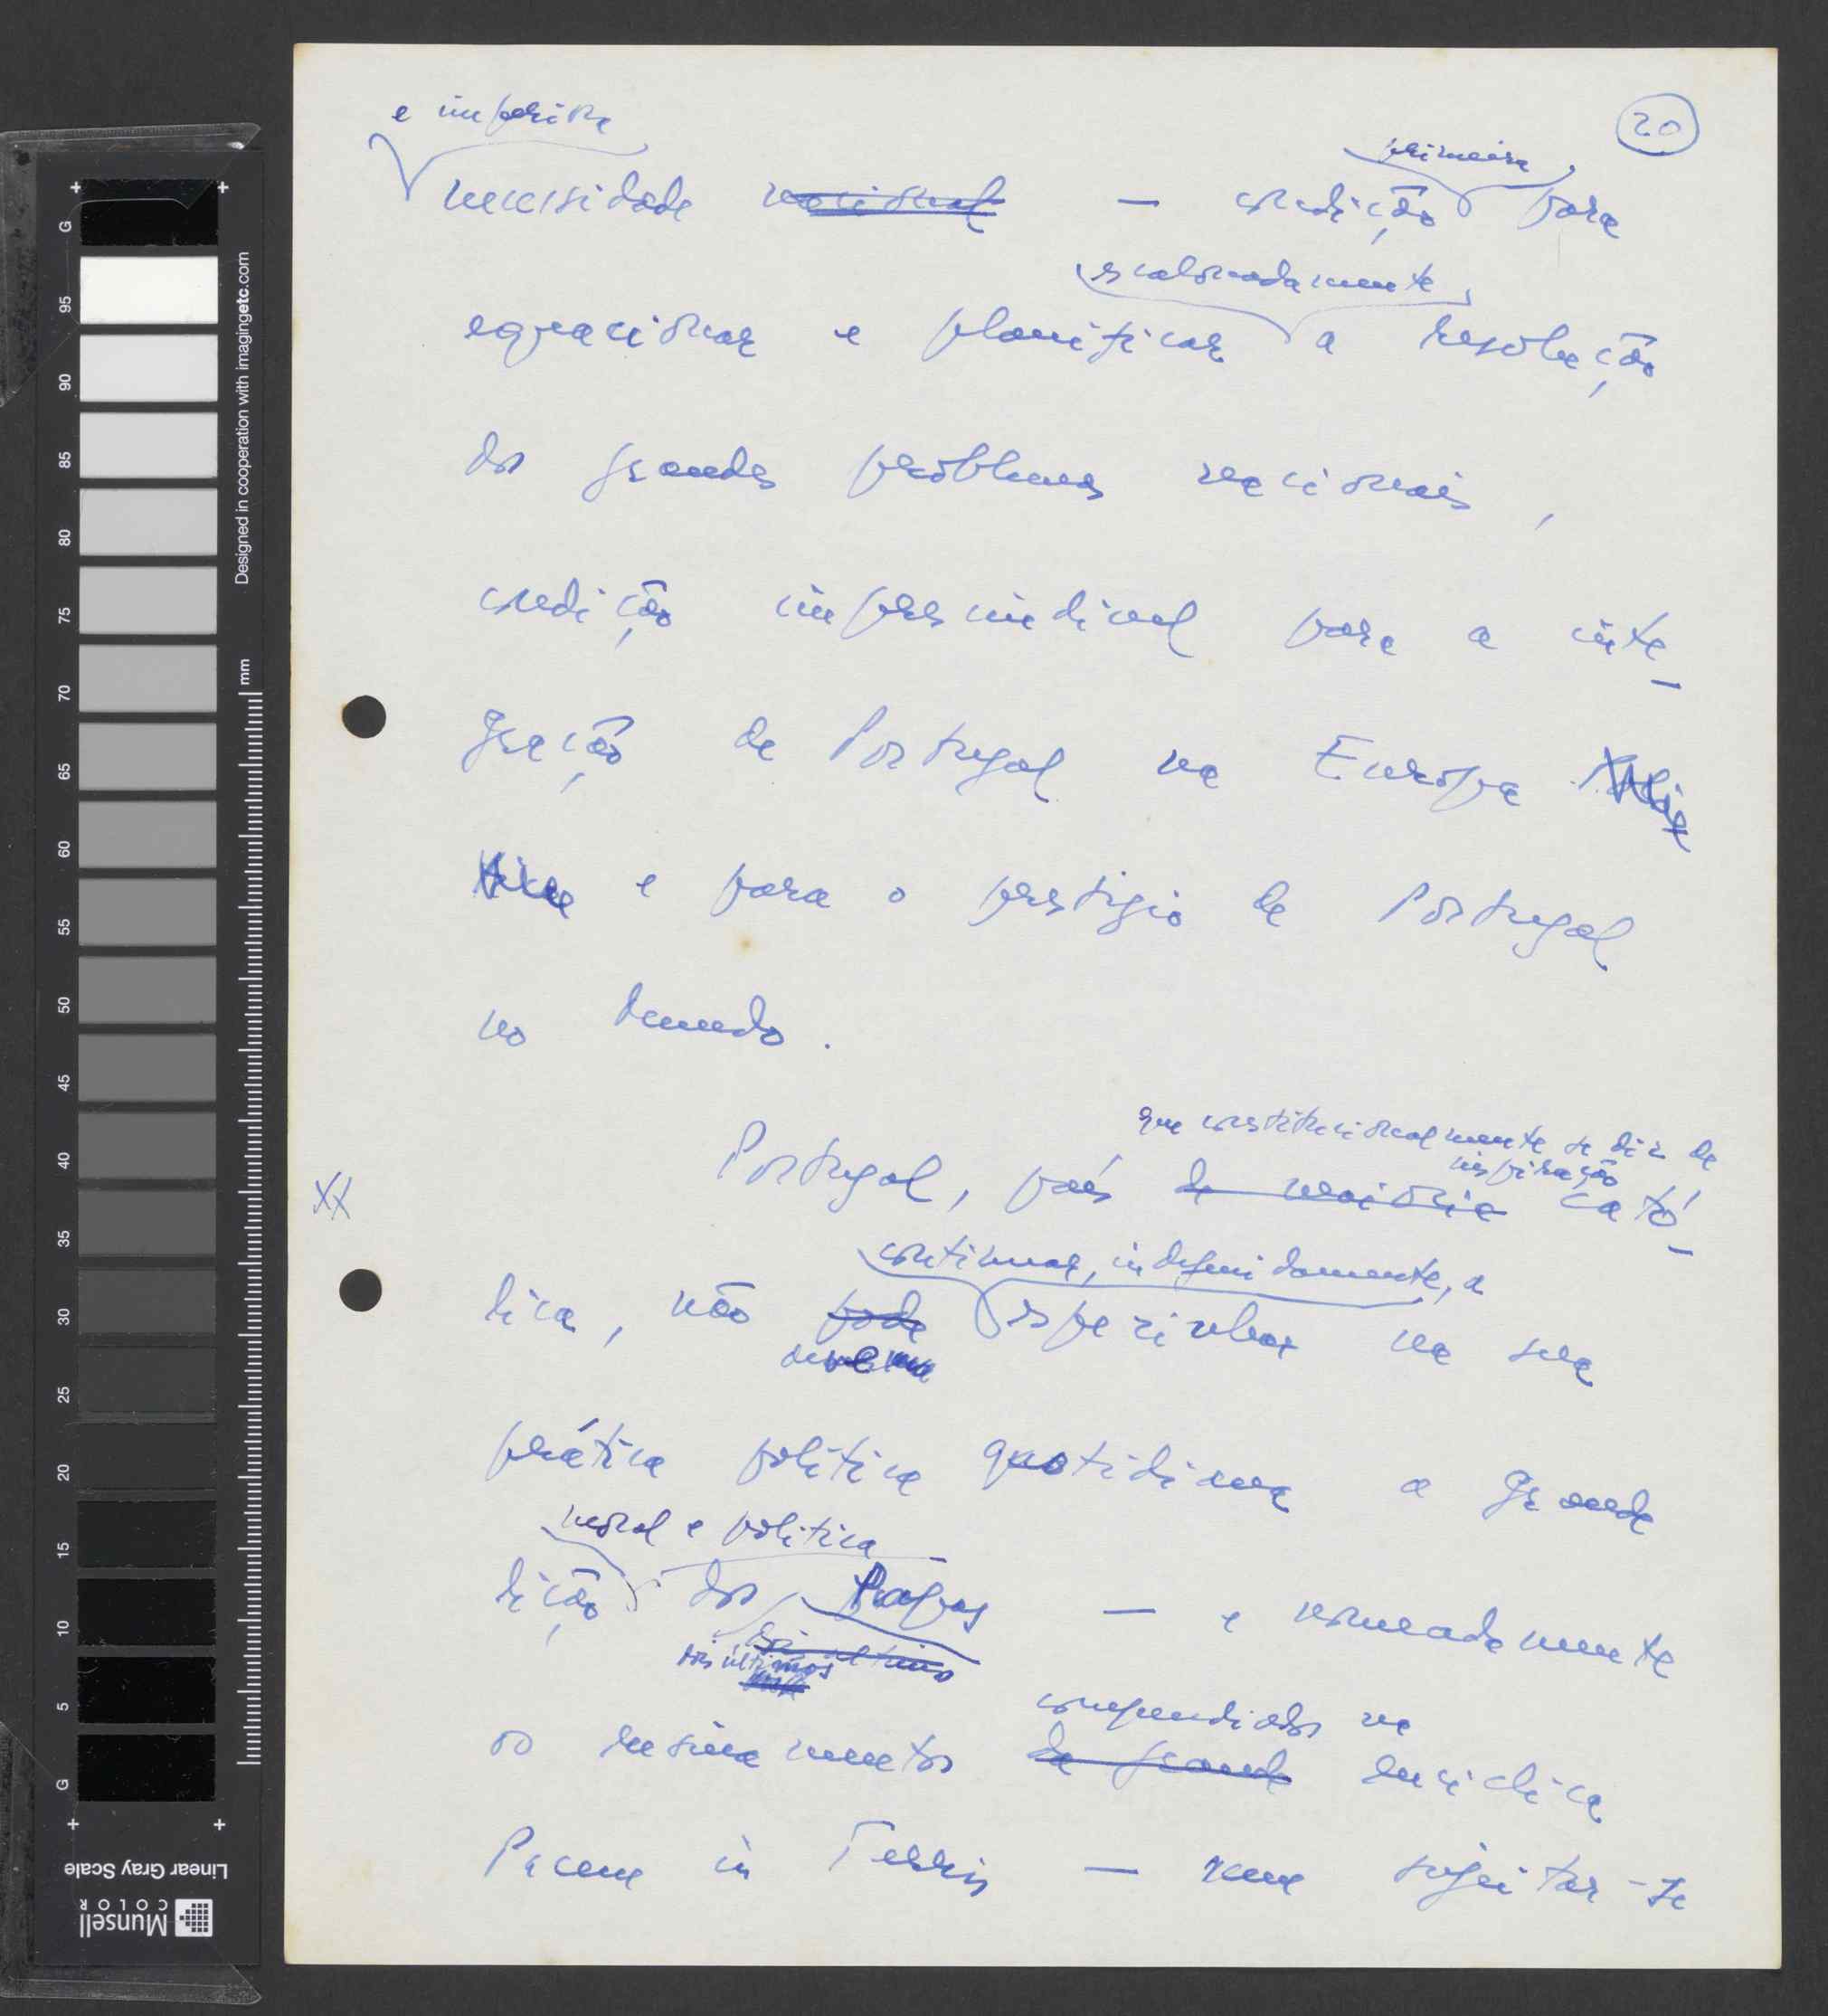 20
e imperiosa
necessidade nacional — condição primeira, para
escalonadamente,
equacionar e planificar a resolução
dos grandes problemas nacionais,
condição imprescindível para a inte-
gração de Portugal na Europa
e para o prestígio de Portugal
no Mundo.
que constitucionalmente se diz de
inspiração
XX Portugal, país de maioria cató-
continuar, indefinidamente, a
lica, não pode espezinhar na sua
prática política quotidiana a grande
moral e política
lição dos Papas — e nomeadamente
dois últimos
compendiados na
os ensinamentos da grande encíclica
Pacem in Terris — nem sujeitar-se
G
95
90
85
80
75
70
65
60
55
50
45
40
35
30
25
20
15
10
5
G
mm
Designed in cooperation with imagingetc.com
Linear Gray Scale
Munsell
COLOR